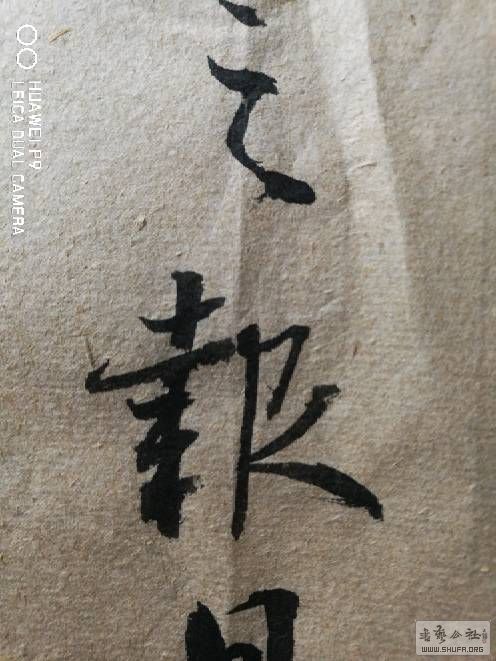 之
報
HUAWEI P9
LEICA DUAL CAMERA
书艺公社
WWW.SHUFA.ORG